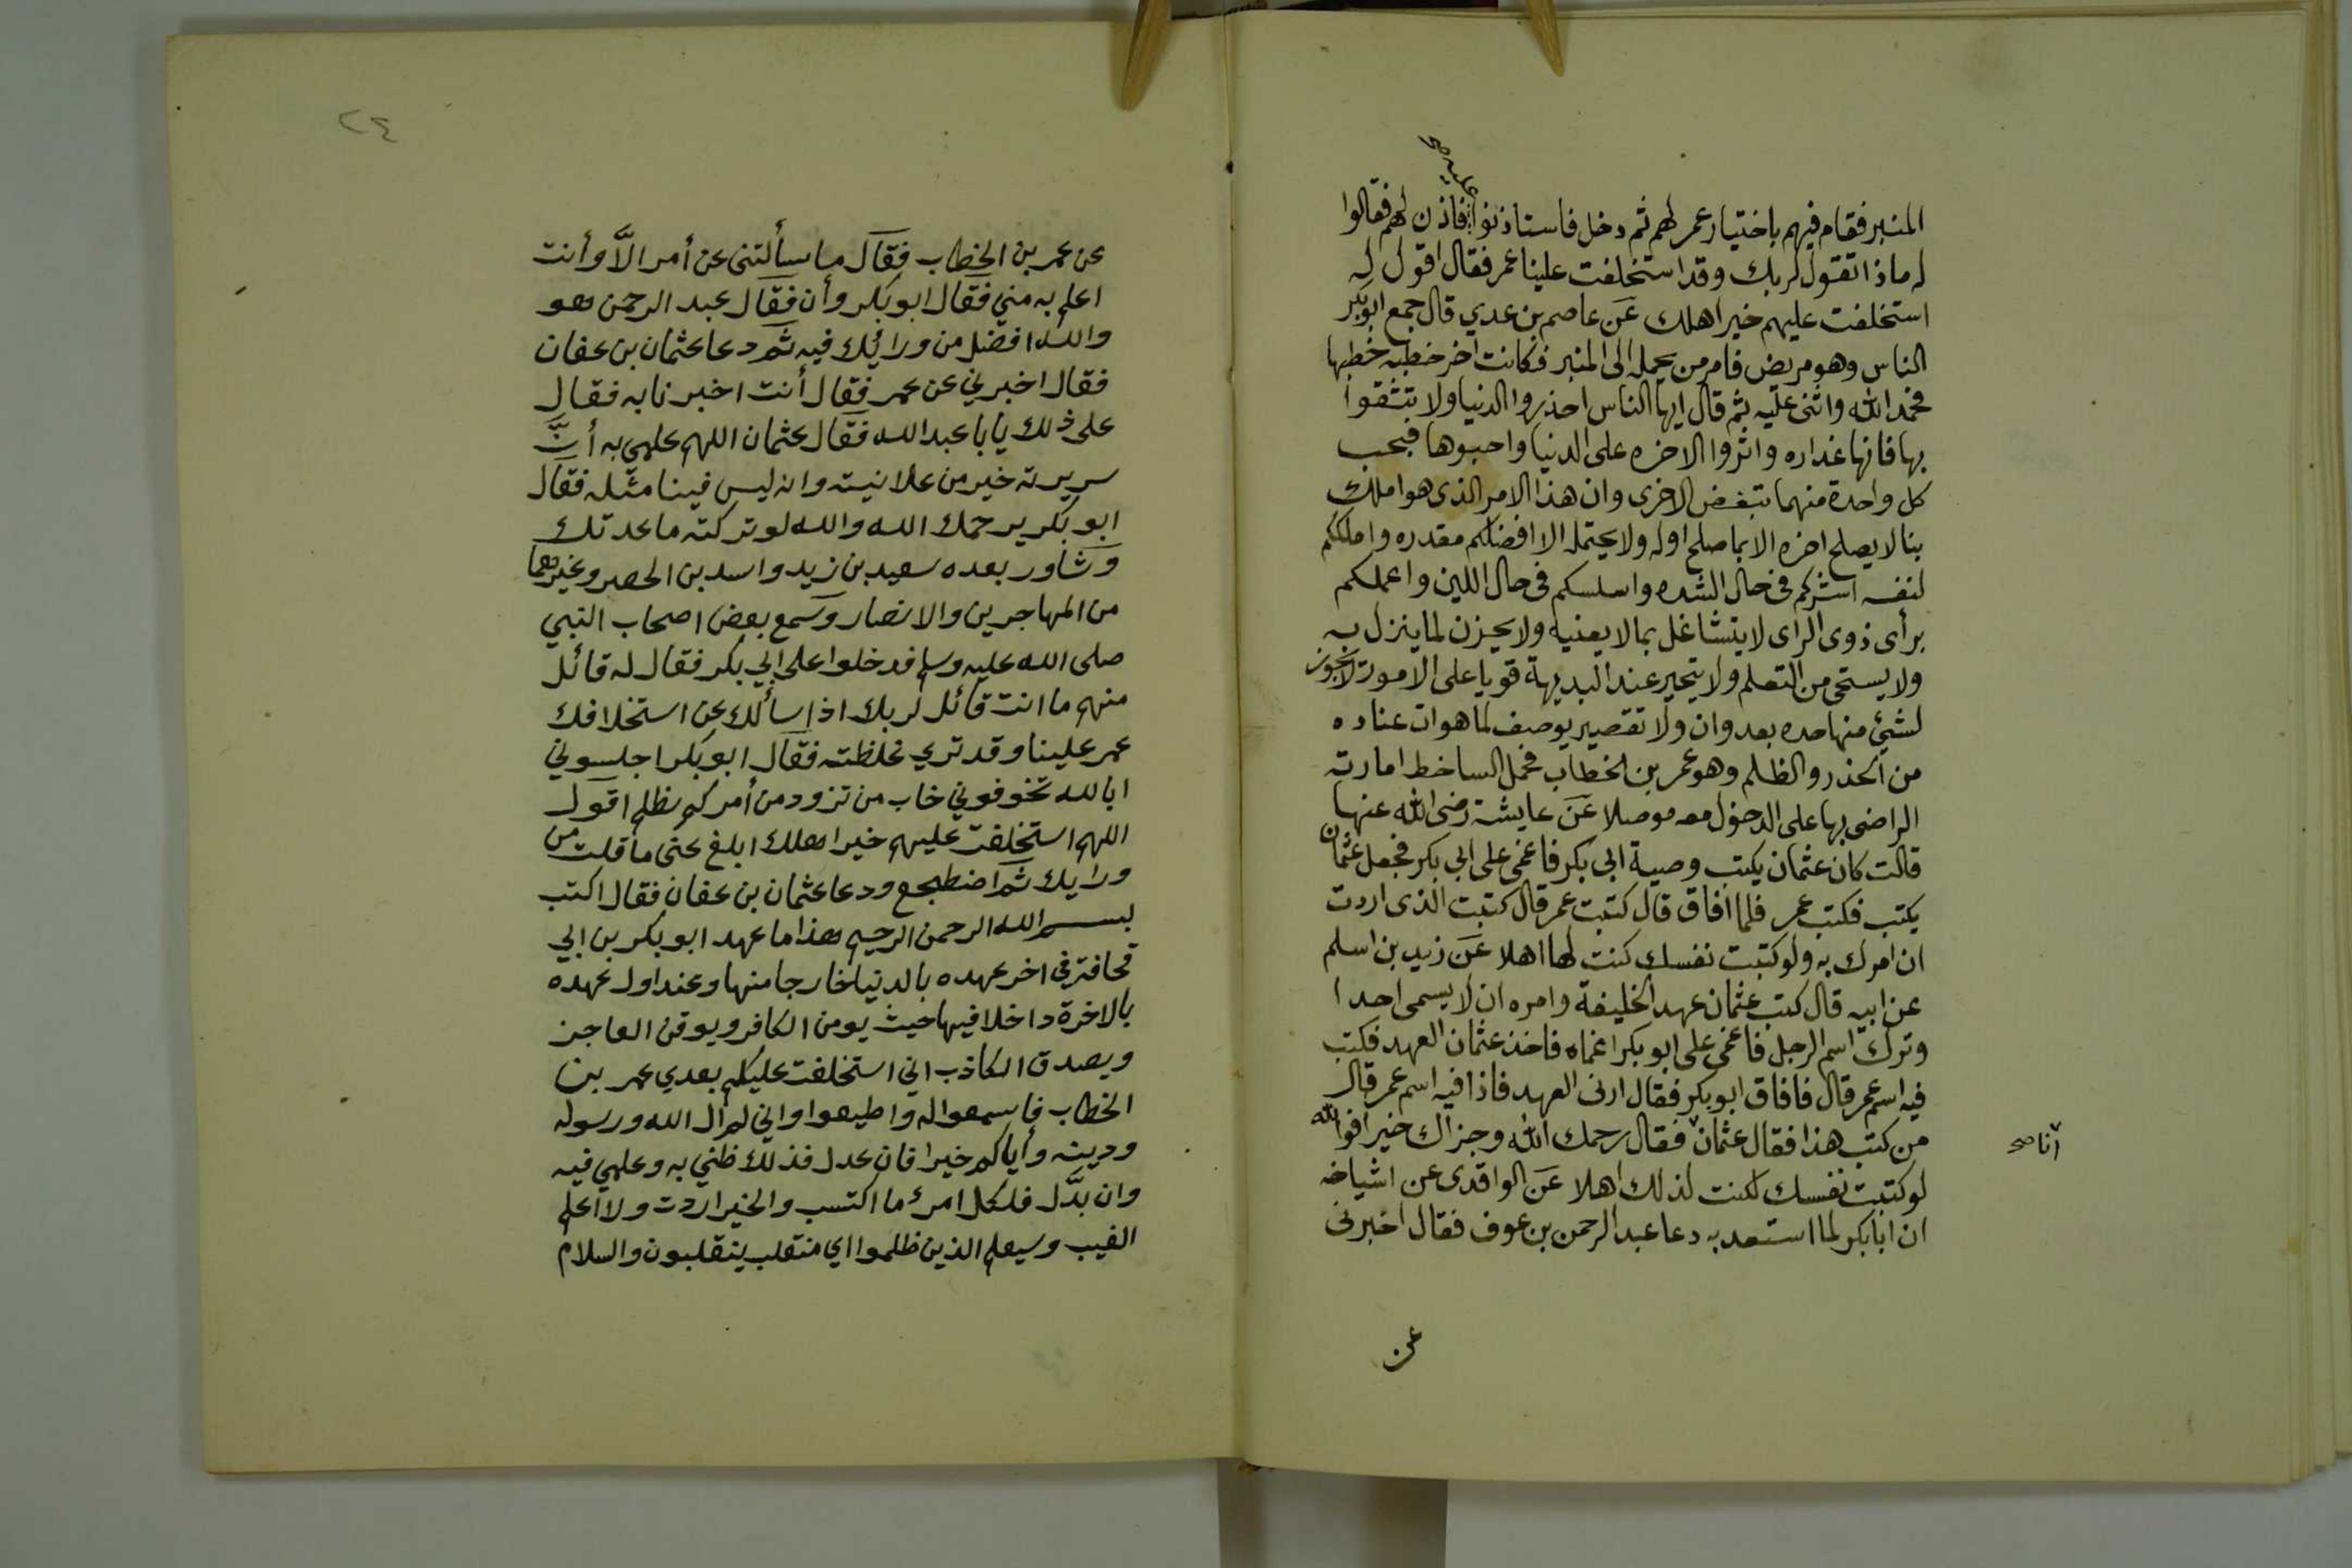 المنبر فقام فيهم باختيار عمر لهم ثم دخل فاستاذنوا عليه صح فاذن لهم فقالوا
له ماذا تقول لربك وقد استخلفت علينا عمر فقال اقول له
استخلفت عليهم خير اهلك عن عاصم بن عدي قال جمع ابوبكر
الناس وهو مريض فامر من يحمله الى المنبر فكانت اخر خطبه خطبها
فحمد الله واثنى عليه ثم قال ايها الناس احذروا الدنيا ولا تثقوا
بها فانها غداره واثروا الاخره على الدنيا واحبوها فبحب
كل واحدة منهما تبغض الاخرى وان هذا الامر الذى هو املك
بنا لا يصلح اخره الا بما صلح اوله ولا يحتمله الا افضلكم مقدره واملككم
لنفسه اشدكم فى حال الشده واسلسكم فى حال اللين واعملكم
برأى ذوى الراى لا يتشاغل بما لا يعنيه ولا يحزن لما ينزل به
ولا يستحى من التعلم ولا يتحير عند البديهة قويا على الامور لا يجوز
لشيئ منها حده بعدوان ولا تقصير يوصف لما هوات عناده
من الحذر والظلم وهو عمر بن الخطاب فحمل الساخط امارته
الراضى بها على الدخول معه موصلا عن عايشة رضى الله عنها
قالت كان عثمان يكتب وصية ابى بكر فاغمى على ابى بكر فجعل عثمان
يكتب فكتب عمر فلما افاق قال كتبت عمر قال كتبت الذى اردت
ان امرك به ولو كتبت نفسك كنت لها اهلا عن زيد بن اسلم
عن ابيه قال كتب عثمان عهد الخليفة وامره ان لا يسمى احدا
وترك اسم الرجل فاغمى على ابو بكر اغماه فاخذ عثمان العهد فكتب
فيه اسم عمر قال فافاق ابو بكر فقال ارنى العهد فاذا فيه اسم عمر قال
من كتب هذا فقال عثمان فقال رحمك الله وجزاك خيرا فوالله
انا صح
لو كتبت نفسك لكنت لذلك اهلا عن الواقدى عن اشياخه
ان ابا بكر لما استعد به دعا عبد الرحمن بن عوف فقال اخبرنى
عن
٢٤
عن عمر بن الخطاب فقال ما سألتنى عن أمر الَّا وأنت
اعلم به مني فقال ابو بكر وأن فقال عبد الرحمن هو
والله افضل من ورائيك فيه ثم دعا عثمان بن عفان
فقال اخبرني عن عمر فقال أنت اخبرنا به فقال
على ذلك يا با عبد الله فقال عثمان اللهم علمي به أنَّ
سريرته خير من علانيته وانه ليس فينا مثله فقال
ابو بكر يرحمك الله والله لو تركته ما عدتك
وشاور بعده سعيد بن زيد واسد بن الحصر وغيرهما
من المهاجرين والانصار وسمع بعض اصحاب النبي
صلى الله عليه وسلم فدخلوا على ابي بكر فقال له قائل
منهم ما انت قائل لربك اذا سألك عن استخلافك
عمر علينا وقد تري غلظته فقال ابو بكر اجلسوني
ابالله تخوفوني خاب من تزود من أمركم بظلم اقول
اللهم استخلفت عليهم خير اهلك ابلغ عنى ما قلت من
ورايك ثم اضطجع ودعا عثمان بن عفان فقال اكتب
بسم الله الرحمن الرحيم هذا ما عهد ابو بكر بن ابي
قحافة فى اخر عهده بالدنيا خارجا منها وعند اول عهده
بالاخرة داخلا فيها حيث يومن الكافر ويوقن الفاجر
ويصدق الكاذب اني استخلفت عليكم بعدي عمر بن
الخطاب فاسمعوا له واطيعوا واني لم ال الله ورسوله
ودينه وأياكم خيرا فان عدل فذلك ظني به وعلمي فيه
وان بدَّل فلكل امرئ ما اكتسب والخير اردت ولا اعلم
الغيب وسيعلم الذين ظلموا اي منقلب ينقلبون والسلام